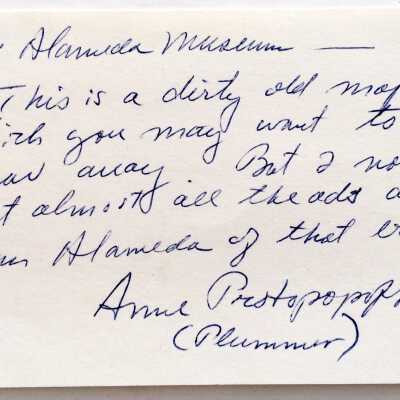 Alameda Museum —
This is a dirty old map
you may want to
away. But I no
almost all the ads a
Alameda of that e
Anne Protopopoff
(Plummer)